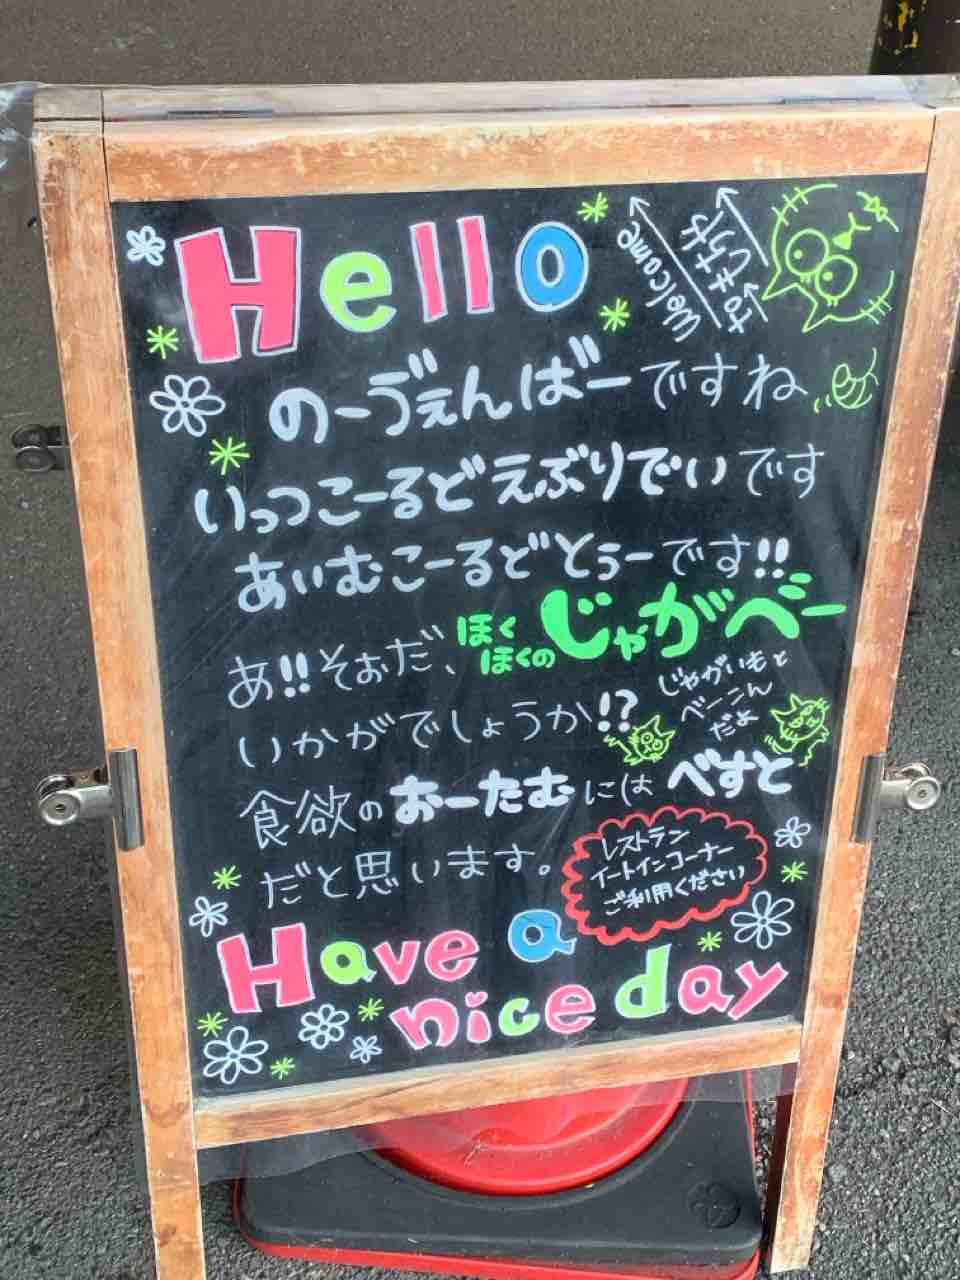 Hello
Welcome
to きたレストラン
のーゔぇんばーですね
いっつこーるどえぶりでいです
あいむこーるどとぅーです!!
あ!!そぉだ、ほくほくのじゃがべー
いかがでしょうか!?
じゃがいもと
べーこん
だよ
食欲のおーたむにはべすと
だと思います。
レストラン
イートインコーナー
ご利用ください
Have a
nice day